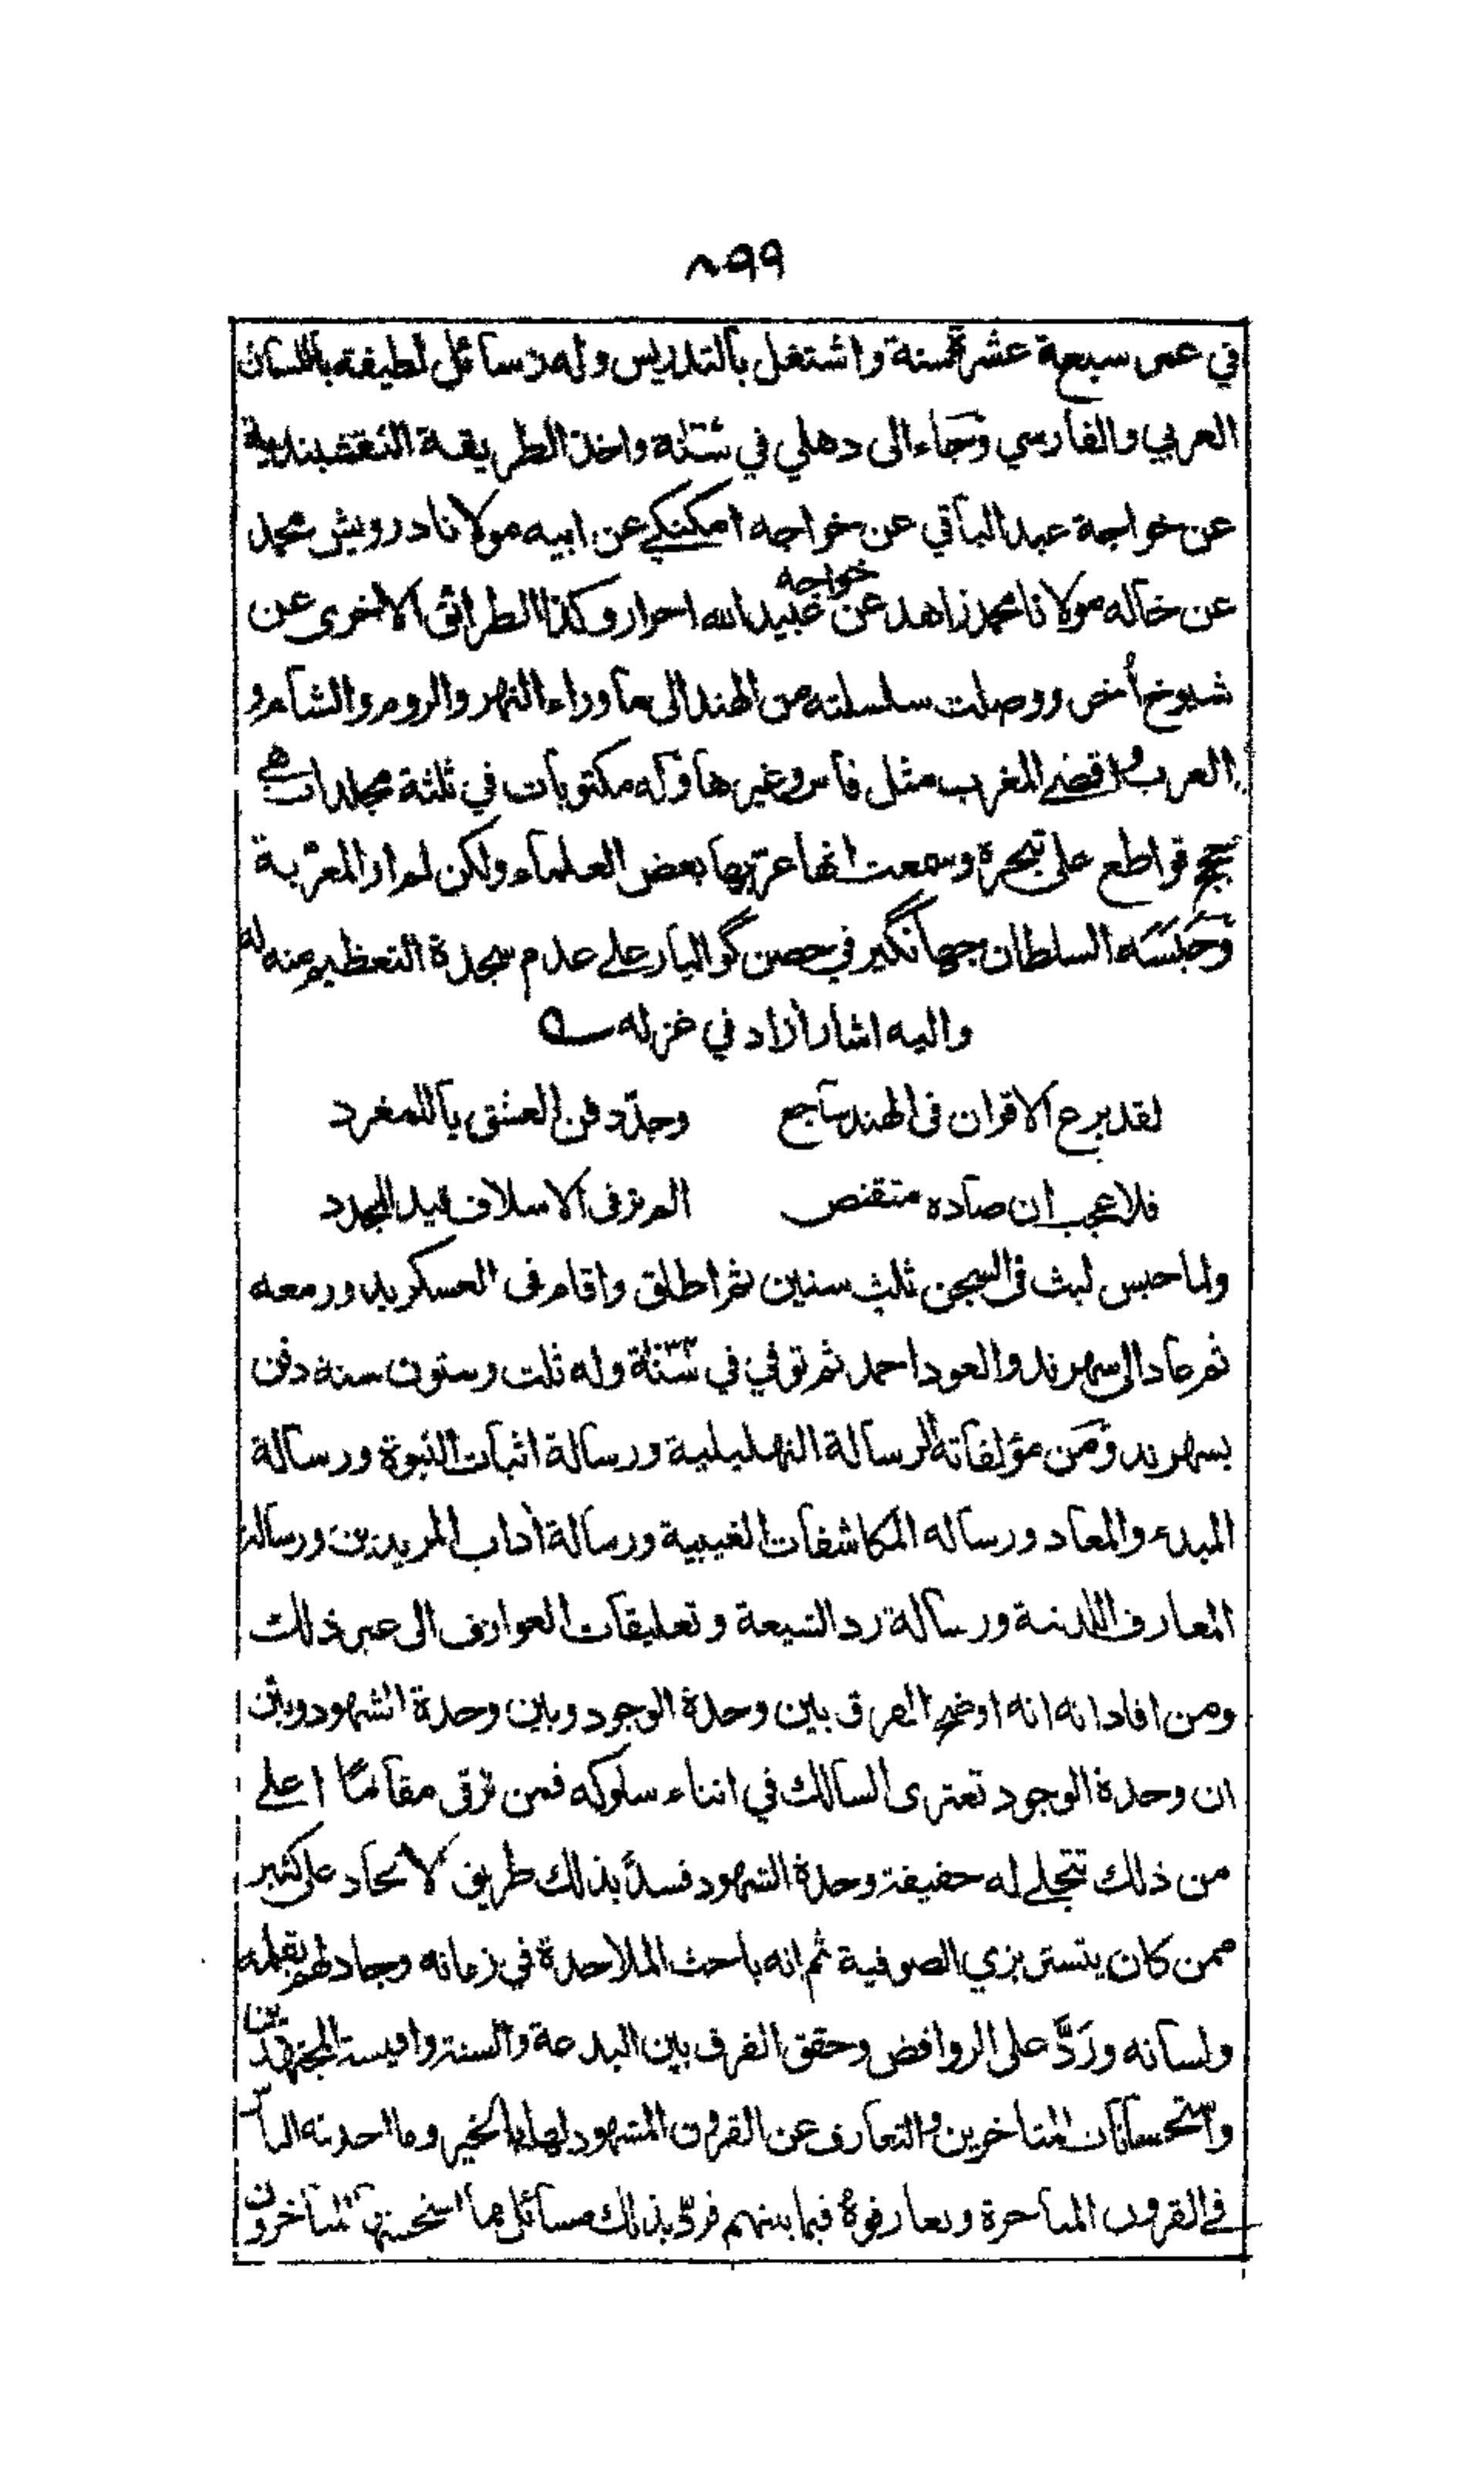 ٨٩٩
في عمر سبعة عشرة سنة واشتغل بالتدريس وله رسائل لطيفة باللسان
العربي والفارسي وجاء الى دهلي في سنة واخذ الطريقة النقشبندية
عن خواجة عبد الباقي عن خواجه امكنكي عن ابيه مولانا درويش محمد
عن خاله مولانا محمد زاهد عن خواجه عبيد الله احرار وكذا الطرائق الاخرى عن
شيوخ أخر ووصلت سلسلته من الهند الى ما وراء النهر والروم والشام و
العرب واقصى المغرب مثل فاس وغيرها وله مكتوبات في ثلثة مجلدات هي
حجج قواطع على تبحره وسمعت انها عربها بعض العلماء ولكن لم ار المعربة
وحبسه السلطان جهانگير في حصن گواليار على عدم سجدة التعظيم منه له
واليه اشار أزاد في غزله
لقد برع الاقران في الهند ساجع وجدد فن العشق يا للمغرد
فلا عجب ان صاده متقنص الم تر في الاسلاف قيد المجدد
ولما حبس لبث في السجن ثلث سنين ثم اطلق واقام في العسكر يدور معه
ثم عاد الى سهرند والعود احمد ثم توفي في سنة وله ثلث وستون سنة دفن
بسهرند ومن مؤلفاته الرسالة التهليلية ورسالة اثبات النبوة ورسالة
المبدء والمعاد ورساله المكاشفات الغيبية ورسالة أداب المريدين ورسالة
المعارف اللدنية ورسالة رد الشيعة وتعليقات العوارف الى غير ذلك
ومن افاداته انه اوضح الفرق بين وحدة الوجود وبين وحدة الشهود وبين
ان وحدة الوجود تعترى السالك في اثناء سلوكه فمن ترقى مقامًا اعلى
من ذلك تتجلى له حقيقة وحدة الشهود فسدّ بذلك طريق الالحاد على كثير
ممن كان يتستر بزي الصوفية ثم انه باحث الملاحدة في زمانه وجادلهم بقلمه
ولسانه وردَّ على الروافض وحقق الفرق بين البدعة والسنة واقيسة المجتهدين
واستحسانات المتاخرين والتعارف عن القرون المشهود لها بالخير وما احدثه الناس
في القرون المتاخرة وتعارفوه فيما بينهم فردّ بذلك مسائل مما استحسنها المتاخرون